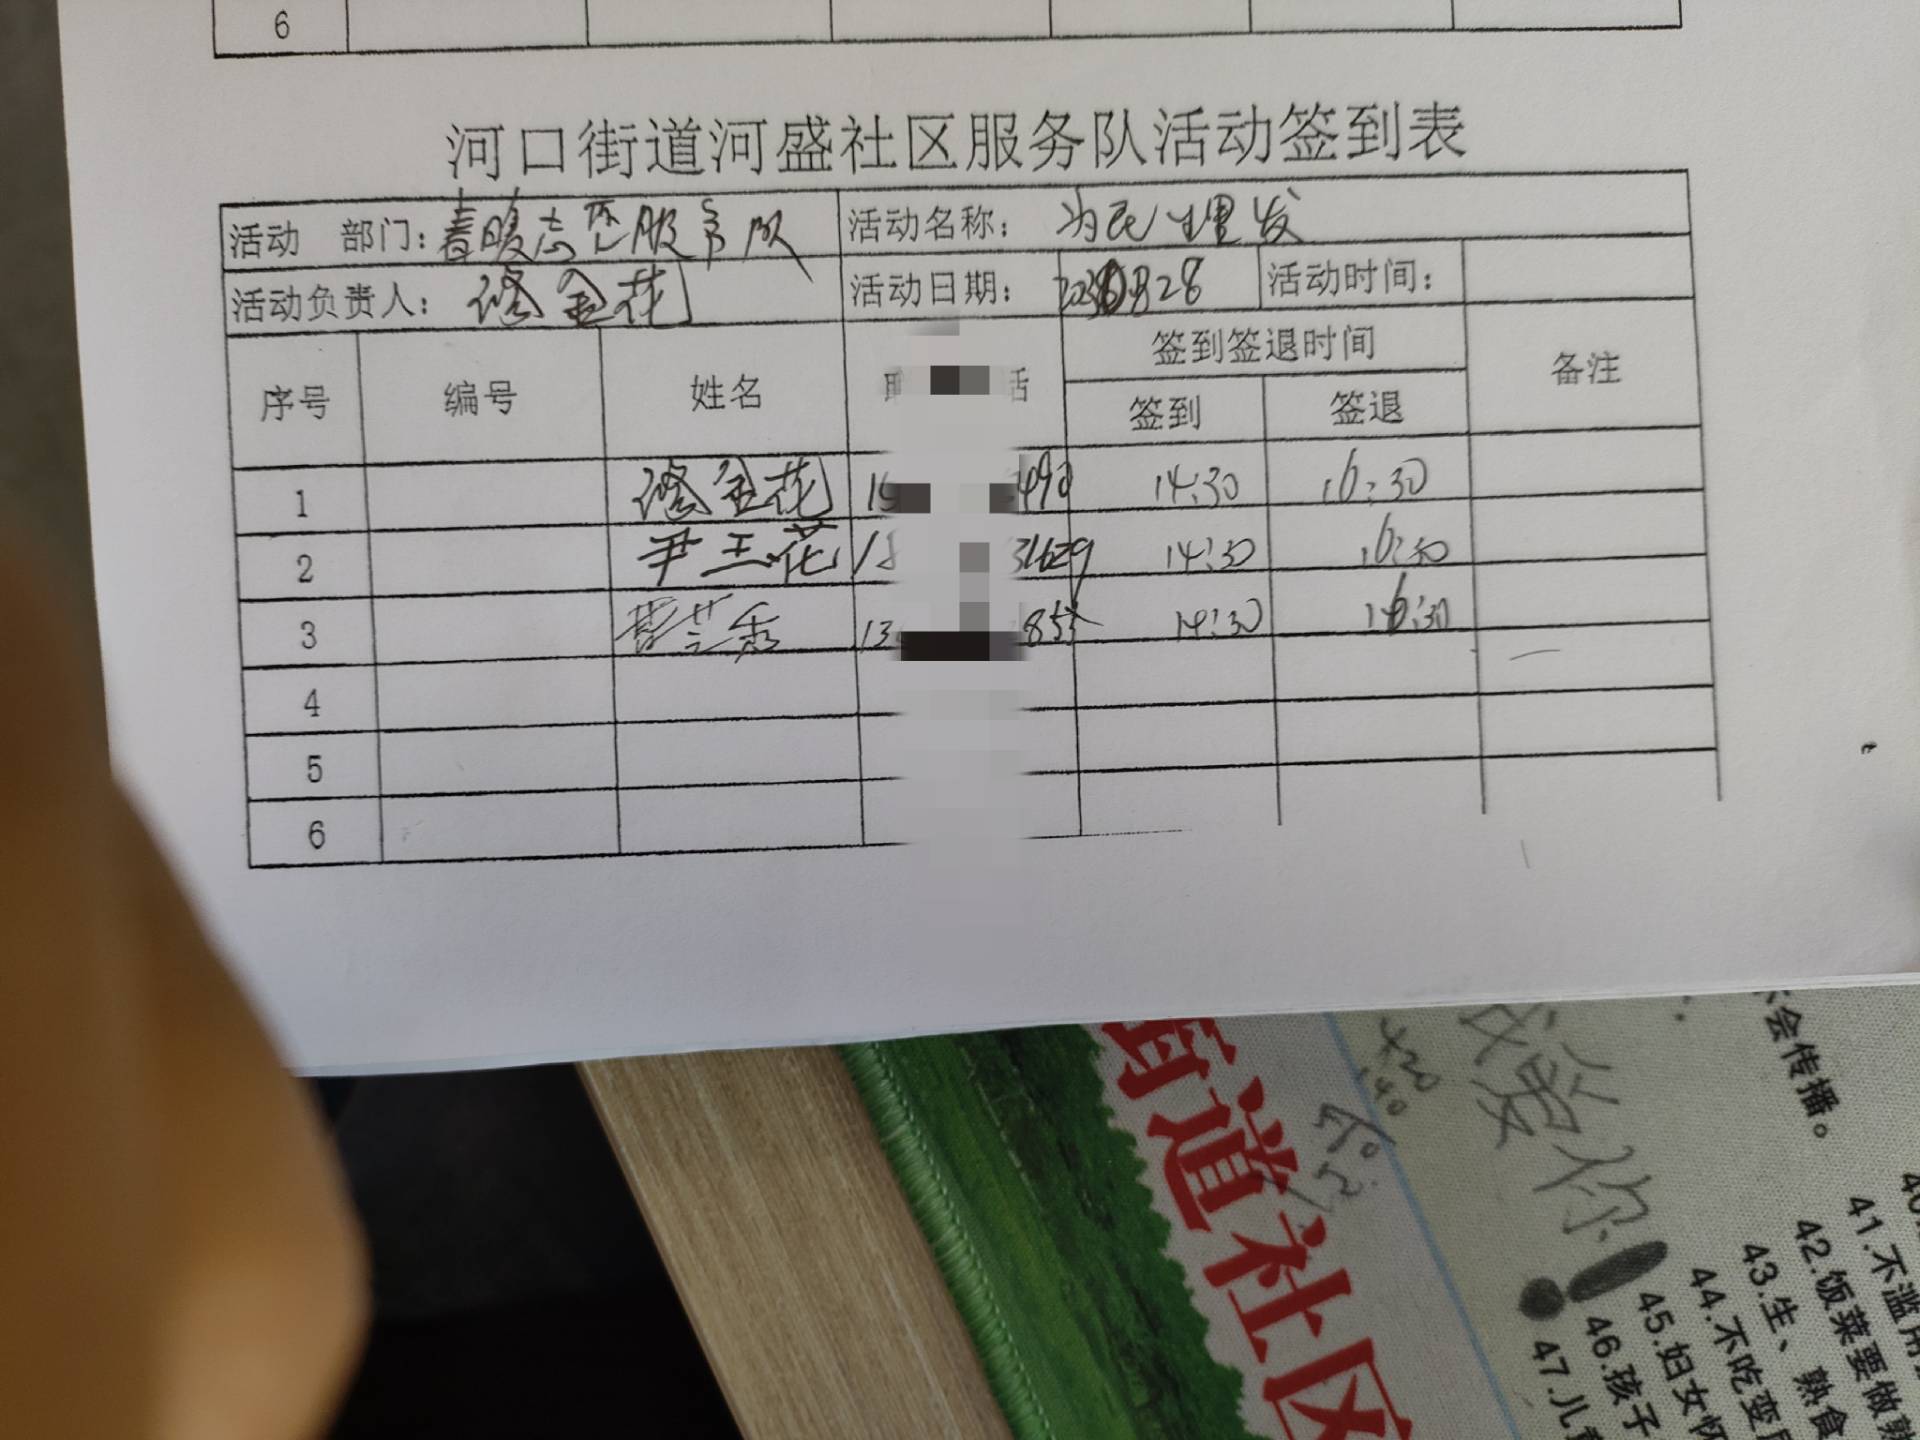 6
河口街道河盛社区服务队活动签到表
活动 部门：春暖志愿服务队 活动名称：为民理发
活动负责人：修金花 活动日期： 828 活动时间：
序号 编号 姓名 话 签到签退时间 备注
签到 签退
1 修金花 490 14:30 16:30
2 尹玉花 18 31629 14:30 16:30
3 秀 13 855 14:30 16:30
4
5
6
街道社区
爱你！
不会传播。
41.不滥用
42.饭菜要做熟
43.生、熟食
44.不吃变
45.妇女怀
46.孩子
47.儿